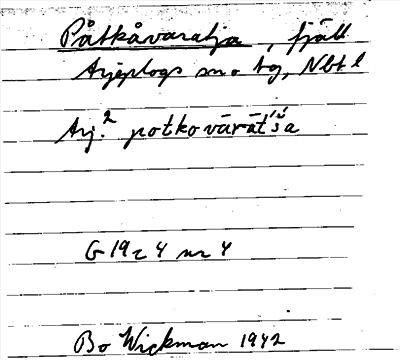 Påtkåvaratja, fjäll
Arjeplogs sn o tg, Nbt. l
Arj.² potkovārāt́'š́a
G 19 c 4 nr 4
Bo Wickman 1942